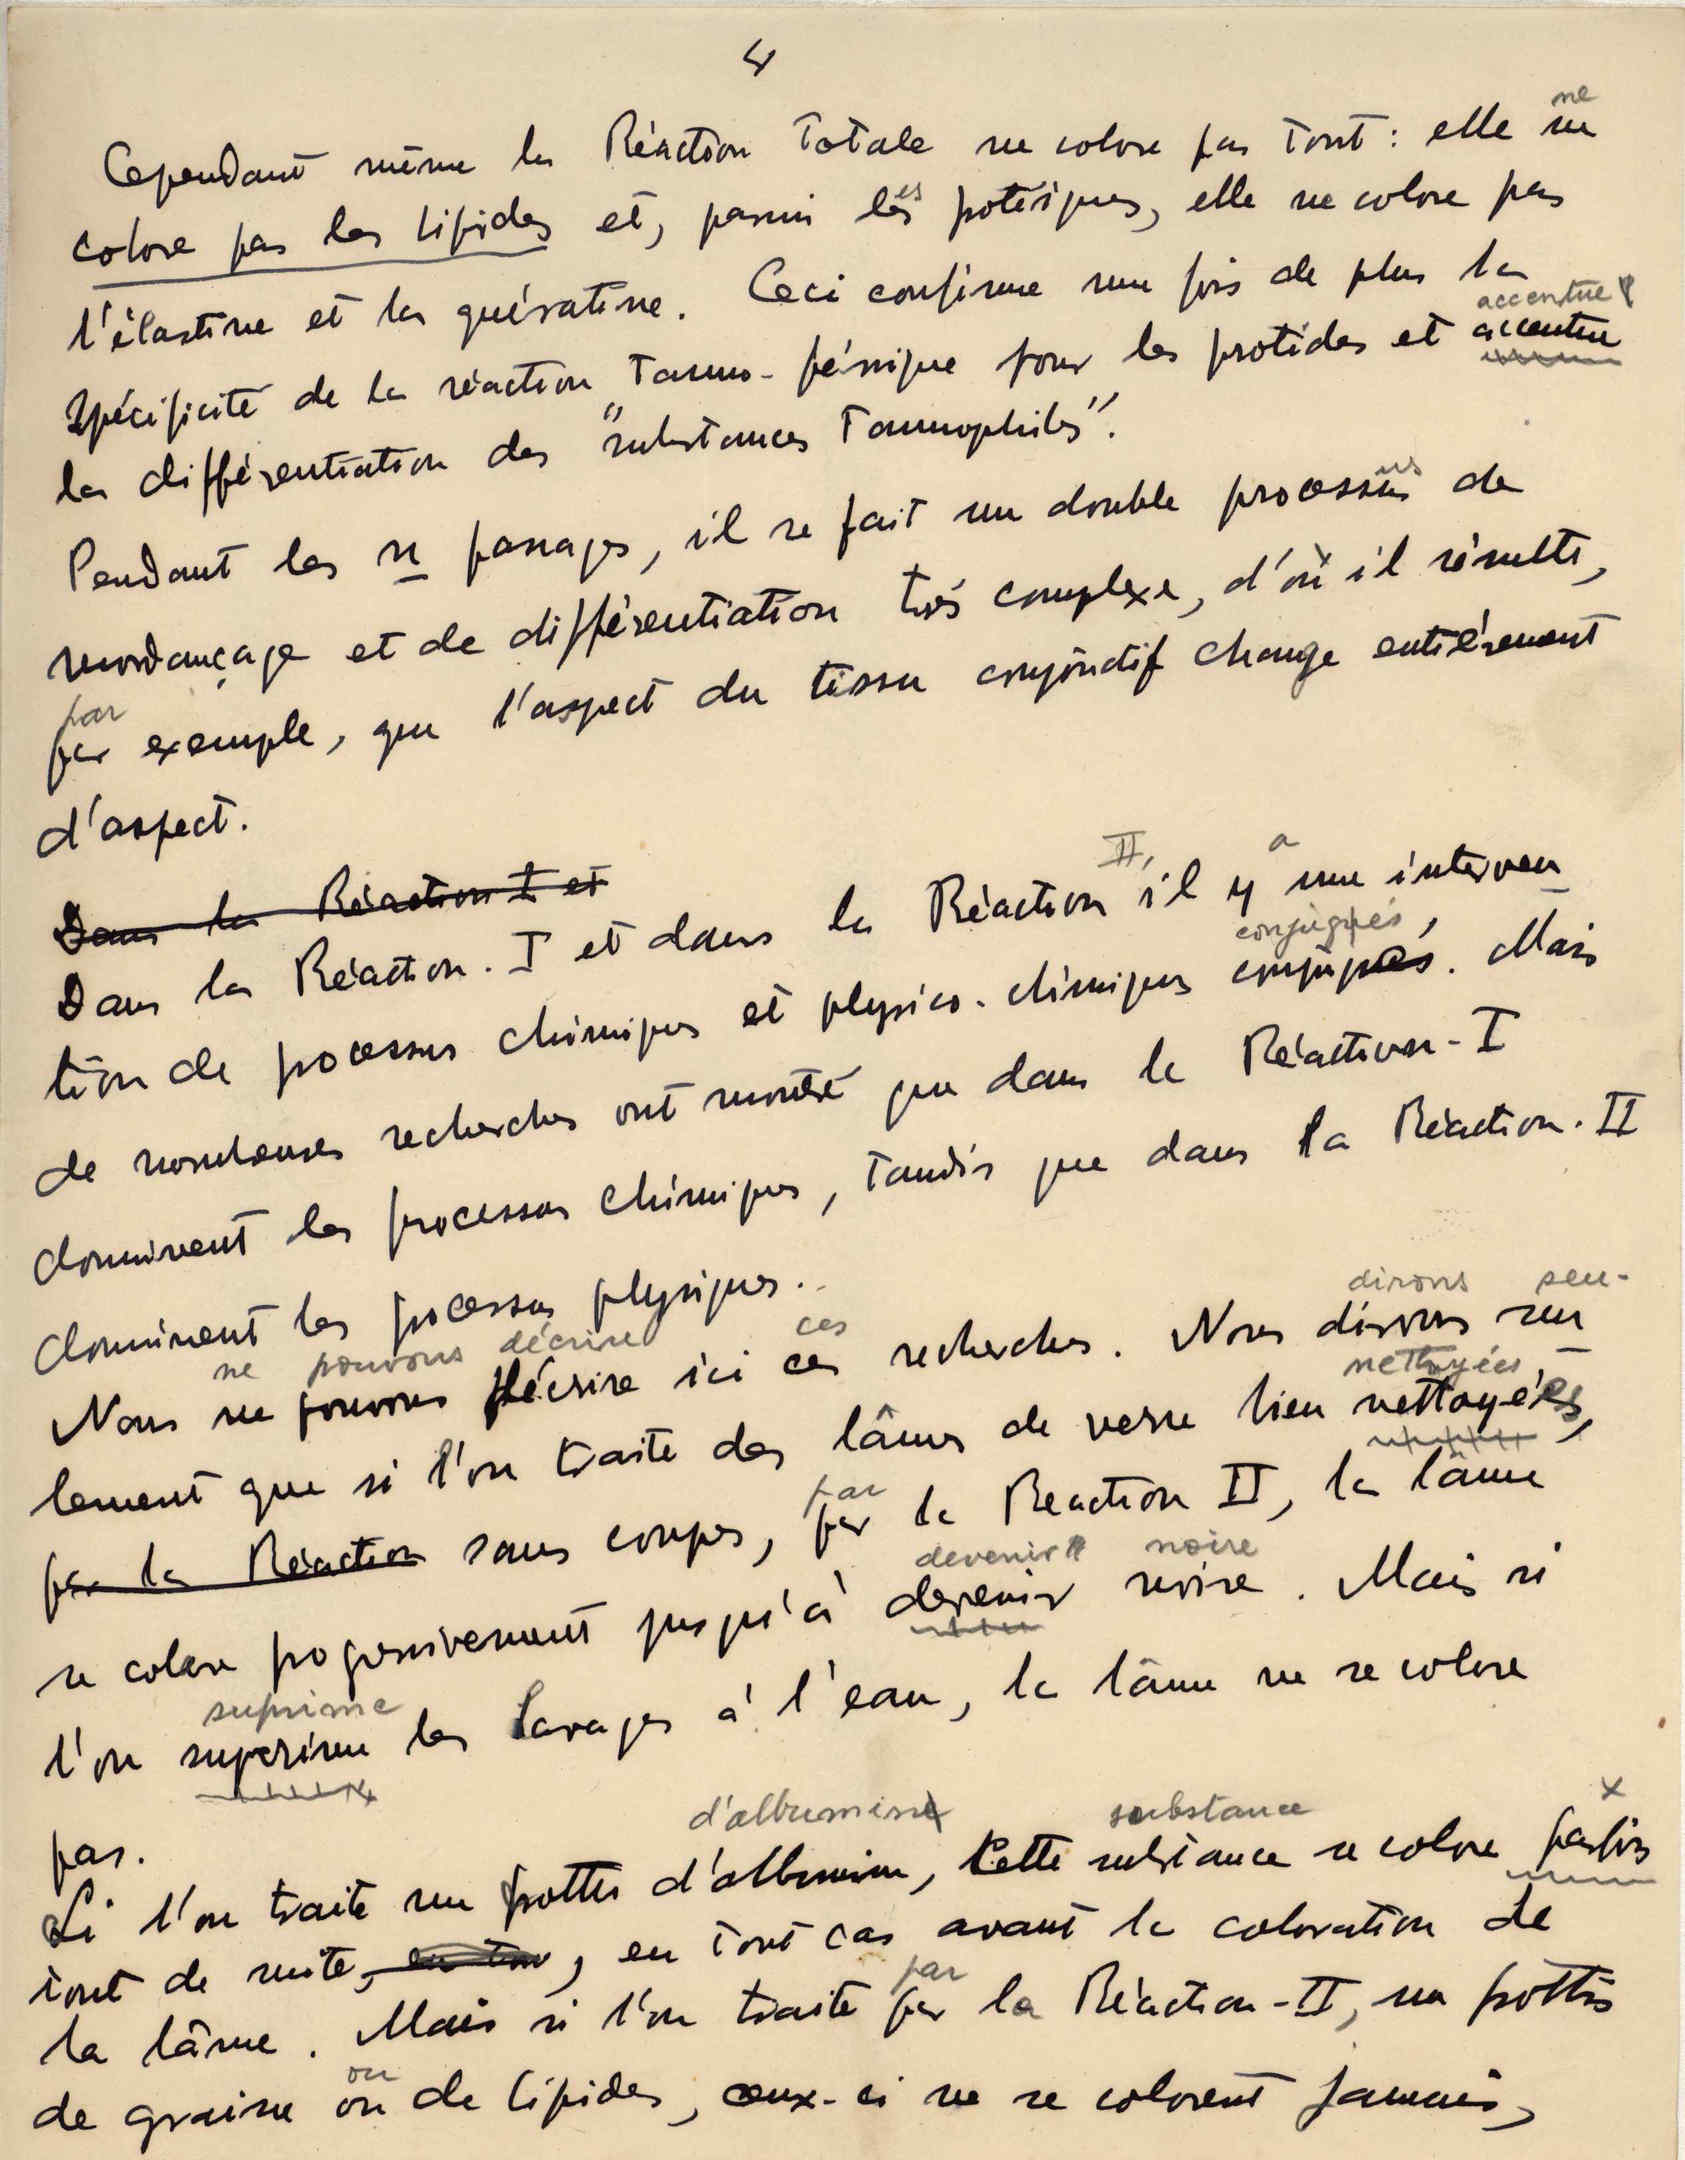 4
ne
Cependant même la Réaction Totale ne colore pas tout : elle ne
colore pas les lipides et, parmi les protéiques, elle ne colore pas
l'élastine et la quératine. Ceci confirme une fois de plus la
accentue
spécificité de la réaction Tanno-férrique pour les protides et accentue
la différentiation des "substances Tannophiles".
Pendant les n passages, il se fait un double processus de
mordançage et de différentiation très complexe, d'où il résulte,
par
par exemple, que l'aspect du tissu conjonctif change entièrement
d'aspect.
Dans la Réaction I et
II, a
Dans la Réaction-I et dans la Réaction il y une interven
conjugués,
tion de processus chimiques et physico-chimiques conjugués. Mais
de nombreuses recherches ont montré que dans la Réaction-I
dominent les processus chimiques, tandis que dans la Réaction-II
dominent les processus physiques.
ne pouvons décrire ces dirons seu-
Nous ne pouvons décrire ici ces recherches. Nous dirons seu
nettoyées,
lement que si l'on traite des lâmes de verre bien nettoyées,
par
par la Réaction sans coupes, par la Reaction II, la lâme
devenir noire
se colore progressivement jusqu'à devenir noire. Mais si
suprime
l'on suprime les lavages à l'eau, la lâme ne se colore
pas.
d'albumine substance x
Si l'on traite un frottis d'albumine, Cette substance se colore parfois
tout de suite, en tou, en tout cas avant la coloration de
par
la lâme. Mais si l'on traite par la Réaction-II, un frottis
ou
de graisse ou de lipides, ceux-ci ne se colorent jamais,